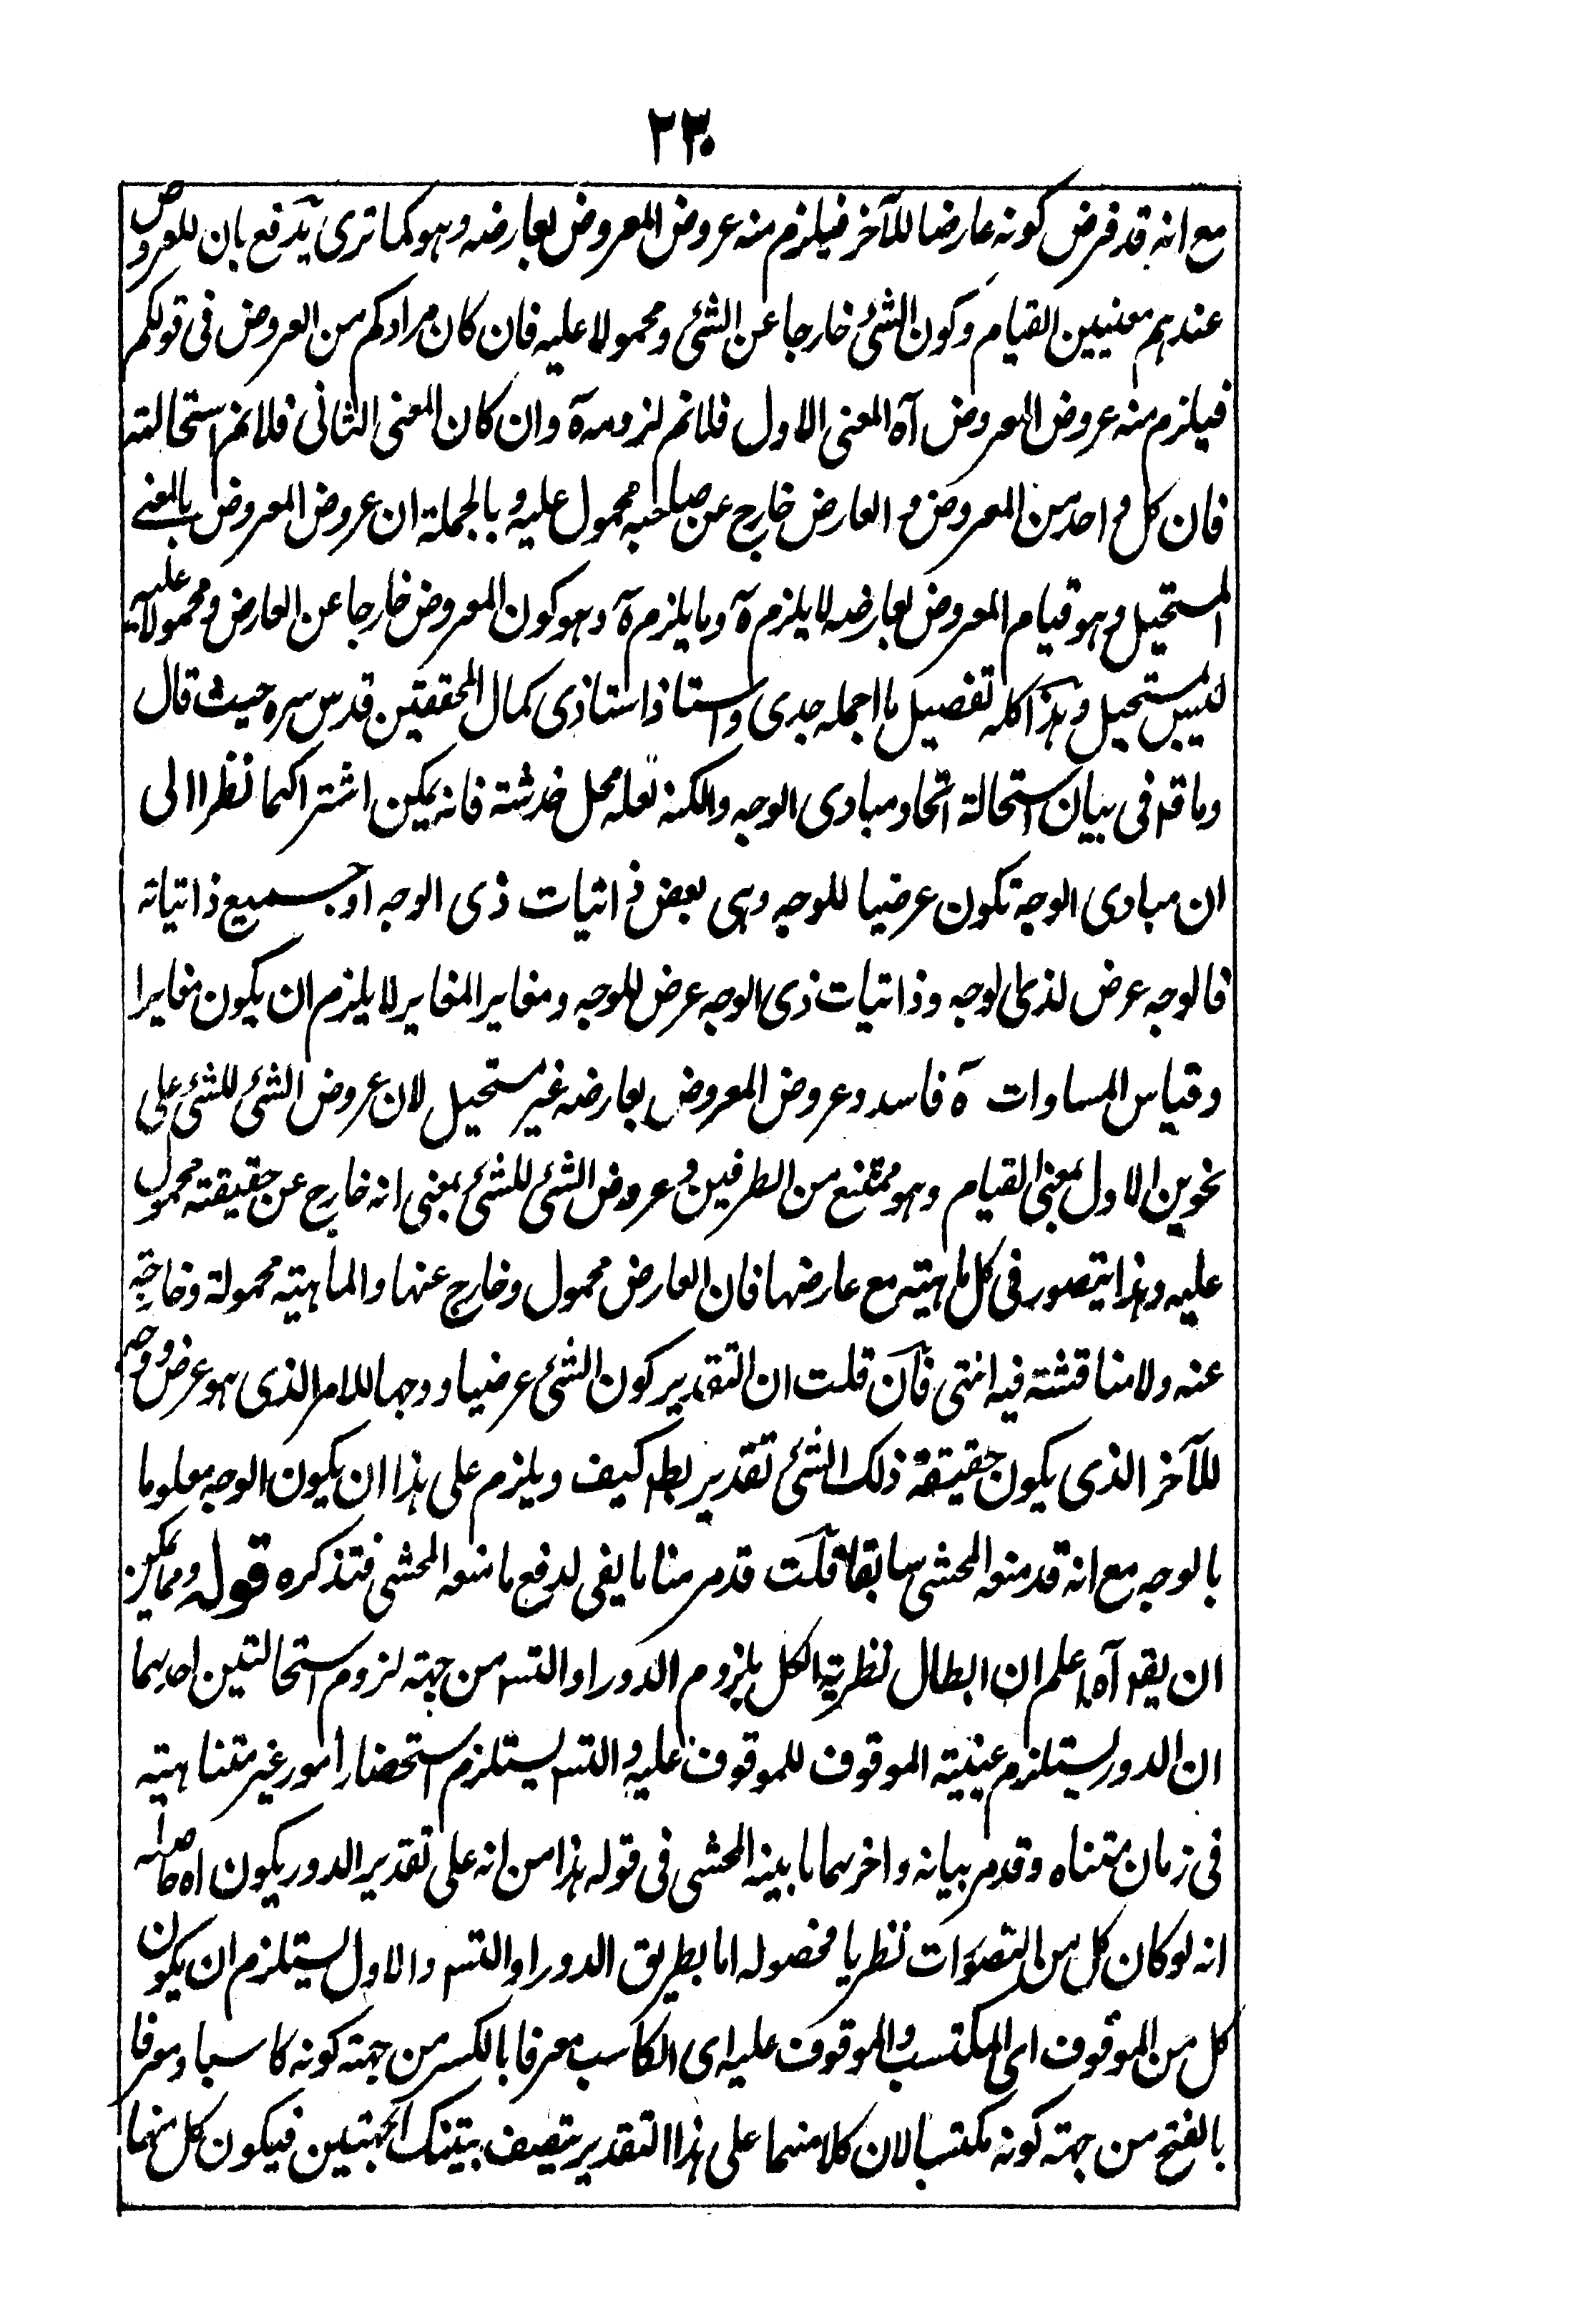 ٢٣٠
مع انه قد فرض كونه عارضا للآخر فيلزم منه عروض المعروض لعارضه وهو كما ترى يدفع بان للعروض
عندهم معنيين القيام وكون الشئ خارجا عن الشئ ومحمولا عليه فان كان مرادكم من العروض فى قولكم
فيلزم منه عروض المعروض آه المعنى الاول فلانم لزومه ة وان كان المعنى الثانى فلانم استحالته
فان كل واحد من المعروض و العارض خارج عن صاحبه محمول عليه و بالجملة ان عروض المعروض بالمعنے
المستحيل وهو قيام المعروض لعارضه لا يلزم ة وما يلزم ة وهو كون المعروض خارجا عن العارض ومحمولا عليه
ليس بمستحيل وهذا كله تفصيل ما اجمله جدى واستاذ استاذى كمال المحققين قدس سره حيث قال
وما قد فى بيان استحالة اتحاد مبادى الوجه والكنه لعله محل خدشة فانه يمكن اشتراكهما نظرا الى
ان مبادى الوجه تكون عرضيا للوجه وهى بعض ذاتيات ذى الوجه او جميع ذاتياته
فالوجه عرض لذى الوجه وذاتيات ذى الوجه عرض للوجه ومغاير المغاير لا يلزم ان يكون مغايرا
وقياس المساوات ة فاسد وعروض المعروض لعارضه غير مستحيل لان عروض الشئ للشئ على
نحوين الاول بمعنى القيام وهو ممتنع من الطرفين و عروض الشئ للشئ بمعنى انه خارج عن حقيقته محمول
عليه وهذا يتصور فى كل ماهية مع عارضها فان العارض محمول وخارج عنها والماهية محمولة وخارجة
عنه ولا مناقشة فيه انتهى فان قلت ان التقدير كون الشئ عرضيا ووجها للامر الذى هو عرض ووجه
للآخر الذى يكون حقيقة ذلك الشئ تقدير بط كيف ويلزم على هذا ان يكون الوجه معلوما
بالوجه مع انه قد منعه المحشى سابقا قلت قد مر منا ما يفى لدفع ما منعه المحشى فتذكره قوله ومما يمكن
ان يقو آه اعلم ان ابطال نظرية الكل بلزوم الدور او التسـ من جهة لزوم استحالتين احدهما
ان الدور يستلزم عينية الموقوف للموقوف عليه و التسـ يستلزم استحضار امور غير متناهية
فى زمان متناه وقد مر بيانه واخرهما ما بينه المحشى فى قوله هذا من انه على تقدير الدور يكون اه حاصله
انه لو كان كل من التصورات نظريا فحصوله اما بطريق الدور او التسـ والاول يستلزم ان يكون
كل من الموقوف اى المكتسب والموقوف عليه اى الكاسب معرفا بالكسر من جهة كونه كاسبا ومعرفا
بالفتح من جهة كونه مكتسبا لان كلا منهما على هذا التقدير يتصف بتينك الجهتين فيكون كل منهما